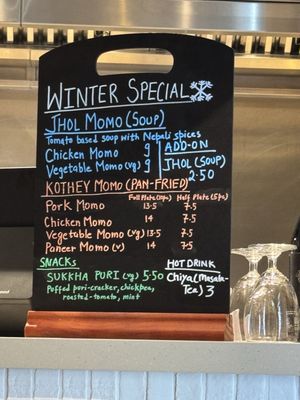 WINTER SPECIAL
JHOL MOMO (SOUP)
Tomato based soup with Nepali spices
Chicken Momo 9
Vegetable Momo (vg) 9
ADD-ON
JHOL (SOUP)
2.50
KOTHEY MOMO (PAN-FRIED)
Full Plate (10pcs) Half Plate (5pcs)
Pork Momo 13.5 7.5
Chicken Momo 14 7.5
Vegetable Momo (vg) 13.5 7.5
Paneer Momo (v) 14 7.5
SNACKS
SUKKHA PURI (vg) 5.50
Puffed puri-cracker, chickpea,
roasted-tomato, mint
HOT DRINK
Chiya (Masala-
Tea) 3